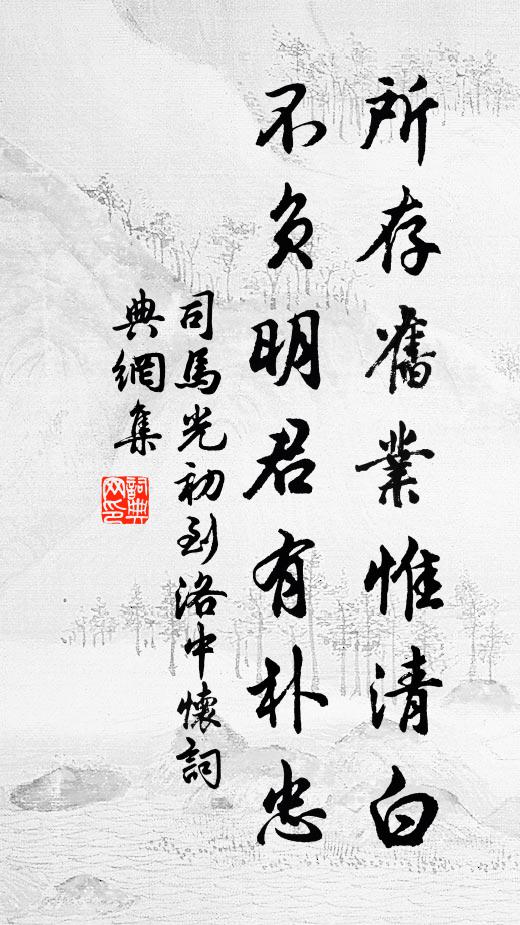 所存舊業惟清白
不负明君有朴忠
司馬光初到洛中懷詞
典網集
詞典网印